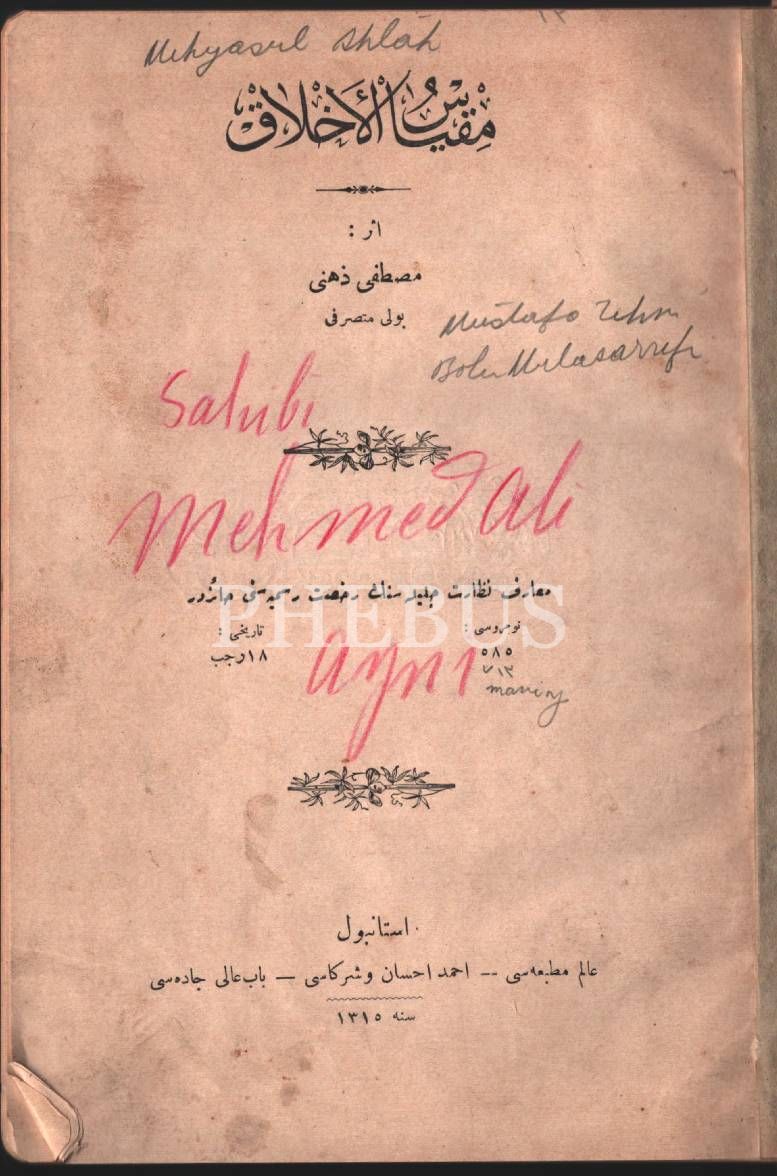 Mikyasul Ahlâk
مقياس الأخلاق
اثر :
مصطفى ذهنى
بولى متصرفى
Mustafa Zihni
Bolu Mutasarrıfı
Sahibi
Mehmed Ali
معارف نظارت جليله سنك رخصت رسميه سنى حائزدر
PHEBUS
نومروسى : تاريخى :
٥٨٥ ١٨ رجب
Ayni
استانبول
عالم مطبعه سى -- احمد احسان و شركاسى — باب عالى جاده سى
سنه ١٣١٥